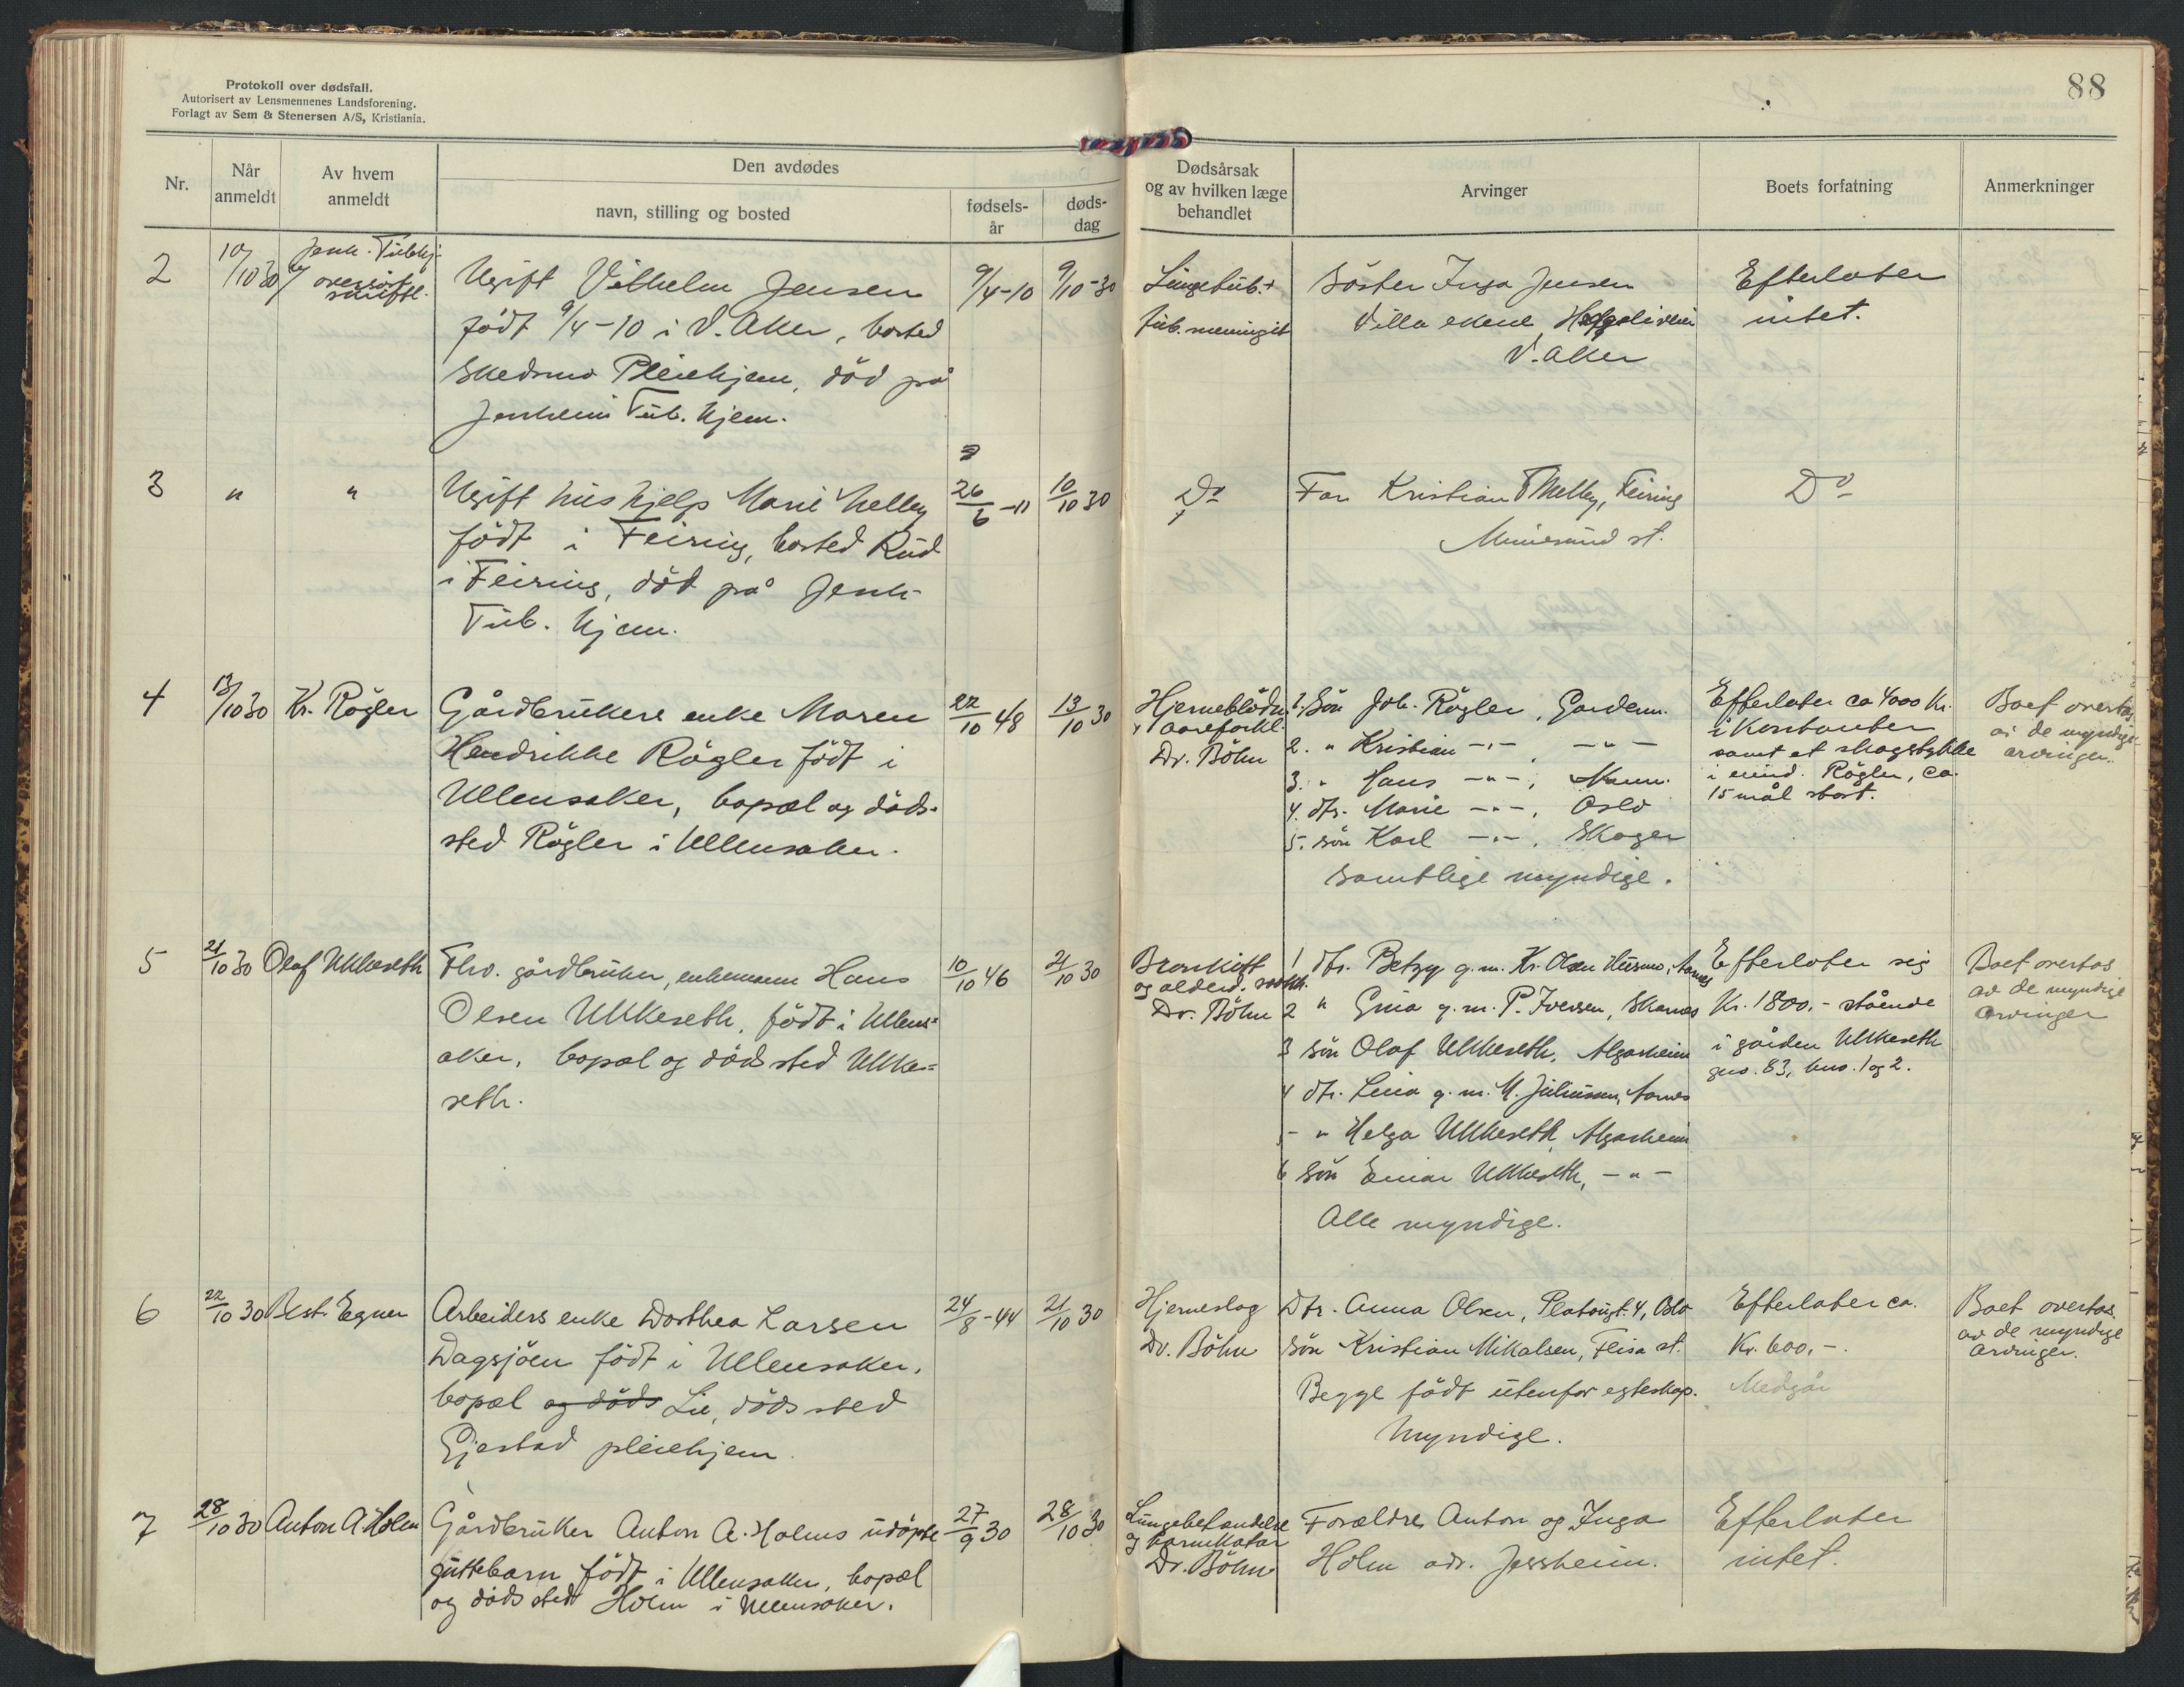 Protokoll over dødsfall.
Autorisert av Lensmennenes Landsforening.
Forlagt av Sem & Stenersen A/S, Kristiania.
88
Nr.
Når anmeldt
Av hvem anmeldt
Den avdødes
navn, stilling og bosted
fødsels-år
døds-dag
Dødsårsak og av hvilken læge behandlet
Arvinger
Boets forfatning
Anmerkninger
2
10/10 30
Jenh. Tubhj.
skriftl.
Ugift Vilhelm Jensen
født 9/4-10 i V. Aker, bosted
Skedsmo Pleiehjem, død på
Jessheim Tub. hjem.
9/4-10
9/10-30
Lungetub. +
tub. meningit
Søster Inga Jensen
Villa ekene,
V. Aker
Efterlater
intet.
3
"
"
Ugift hushjelp Marie Melby
født i Feiring, bosted Rud
i Feiring, død på Jenh.
Tub. hjem.
26/6-11
10/10 30
Do
Far Kristian Melby, Feiring
Minnesund st.
Do
4
13/10 30
Kr. Røgler
Gårdbrukers enke Maren
Hendrikke Røgler født i
Ullensaker, bopæl og døds-
sted Røgler i Ullensaker.
22/10 48
13/10 30
Hjerneblødn.
+ aareforkl.
Dr. Böhn
1. Søn Joh. Røgler, Garderm.
2. " Kristian -"- -"-
3. " Hans -"-,
4. dtr. Marie -"-, Oslo
5. søn Karl -"-, Skoger
samtlige myndige.
Efterlater ca 4000 kr.
i kontanter
samt et skogstykke
i eiend. Røgler, ca.
15 mål stort.
Boet overtas
av de myndige
arvinger.
5
21/10 30
Olaf Ukkeseth
Fhv. gårdbruker, enkemann Hans
Olsen Ukkeseth, født i Ullens=
aker, bopæl og dødssted Ukke=
seth.
10/10 46
21/10 30
Bronkitt
og alderd. svakh.
Dr. Böhn
1 dtr. Betzy g.m. Kr. Olsen Husmo, Aarnes
2 " Gina g.m. P. Iversen, Skarnes
3 søn Olaf Ukkeseth, Algarheim
4 dtr. Lina g.m. M. Juliussen, Aarnes
5 " Helga Ukkeseth, Algarheim
6 søn Einar Ukkeseth, -"-
Alle myndige.
Efterlater sig
Kr. 1800,- stående
i gården Ukkeseth
gno. 83, bno. 1 og 2.
Boet overtas
av de myndige
arvinger
6
22/10 30
Best. Egner
Arbeiders enke Dorthea Larsen
Dagsjøen født i Ullensaker,
bopæl og døds Lie, dødssted
Gjestad pleiehjem
24/8-44
21/10 30
Hjerneslag
Dr. Böhn
Dtr. Anna Olsen, Platousgt. 4, Oslo
søn Kristian Mikalsen, Flisa st.
Begge født utenfor egteskap.
Myndige.
Efterlater ca.
Kr. 600,-.
Medgår
Boet overtas
av de myndige
arvinger.
7
28/10 30
Anton A Holm
Gårdbruker Anton A. Holms udøpte
guttebarn født i Ullensaker, bopæl
og dødssted Holm i Ullensaker.
27/9 30
28/10 30
Lungebetændelse
og tarmkatar
Dr. Böhn
Forældre Anton og Inga
Holm adr. Jessheim.
Efterlater
intet.